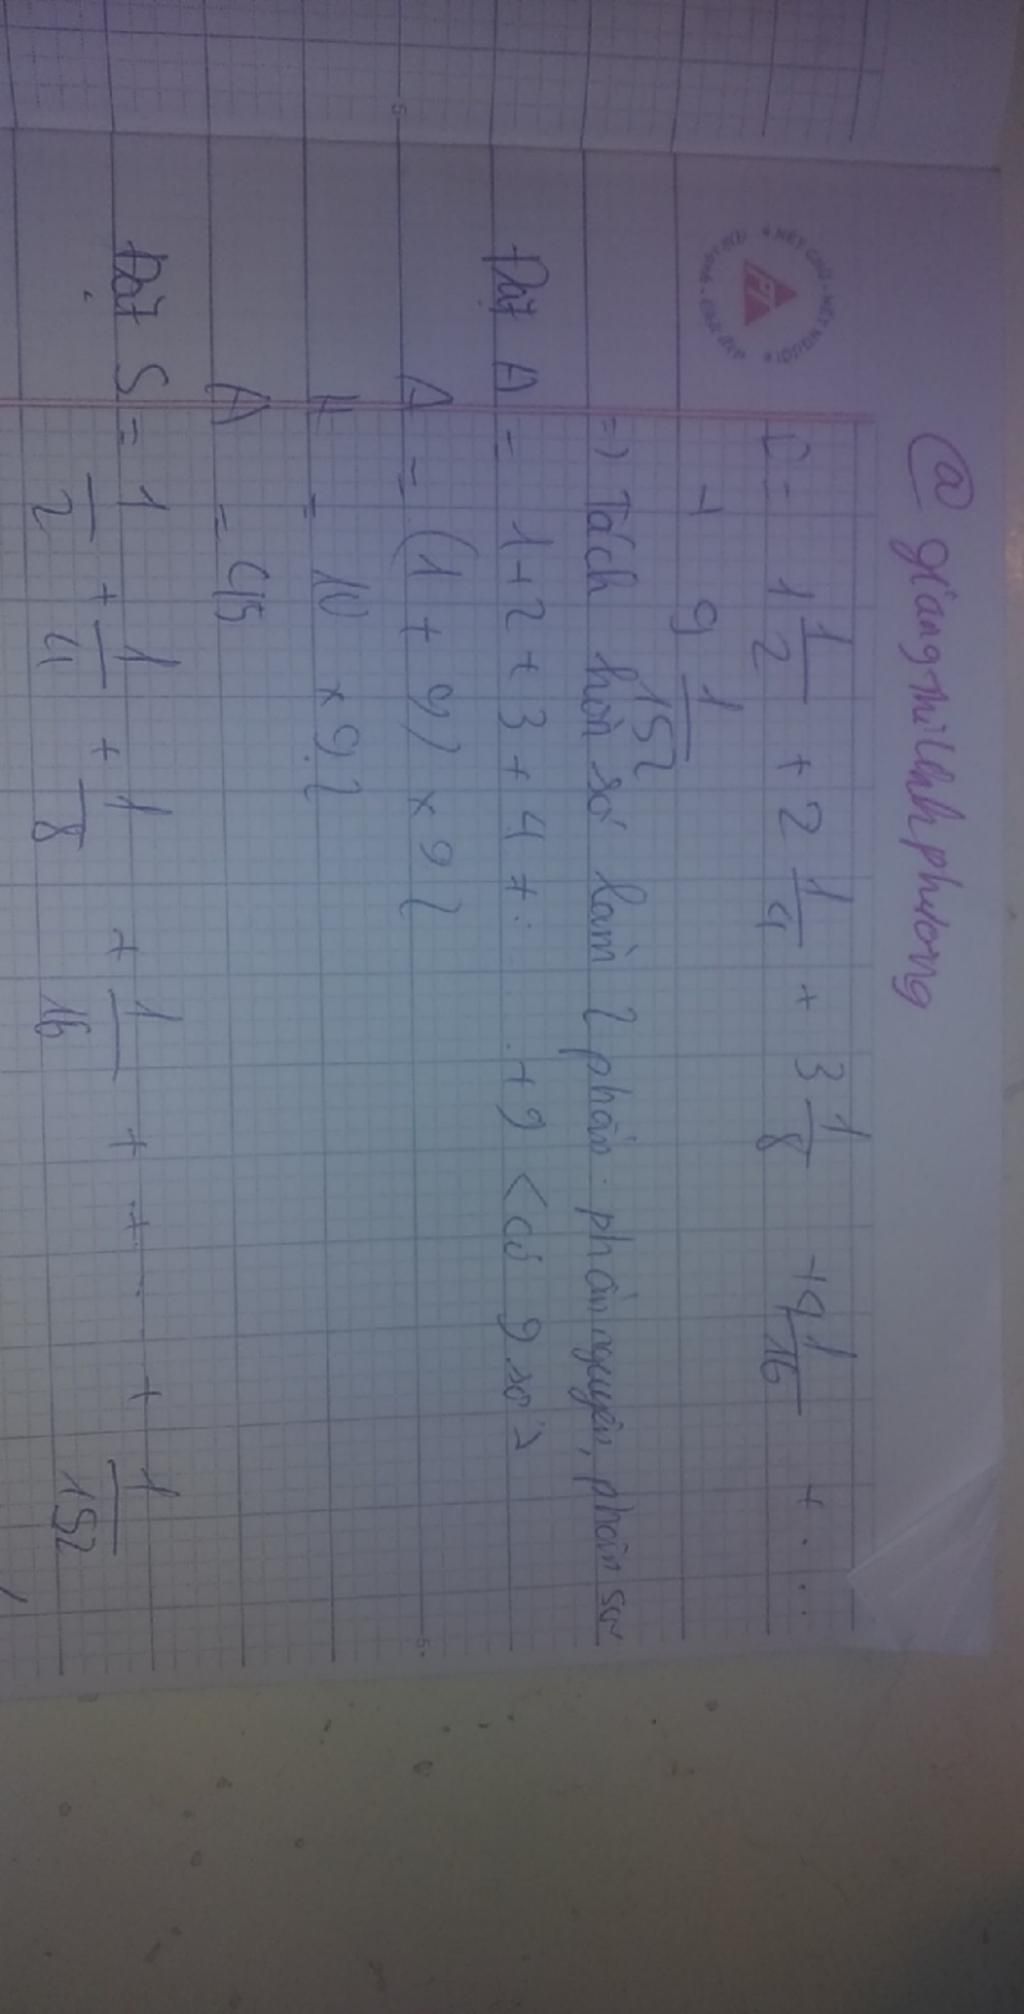 @giangthilinhphuong
NÉT CHỮ - NẾT NGƯỜI
C = 1 1/2 + 2 1/4 + 3 1/8 + 4 1/16 + ...
+ 9 1/152
=) Tách hỗn số làm 2 phần: phần nguyên, phân số
Đặt A = 1 + 2 + 3 + 4 + ... + 9 < có 9 số >
A = (1 + 9) x 9:2
A = 10 x 9:2
A = 45
Đặt S = 1/2 + 1/4 + 1/8 + 1/16 + + ... + 1/152